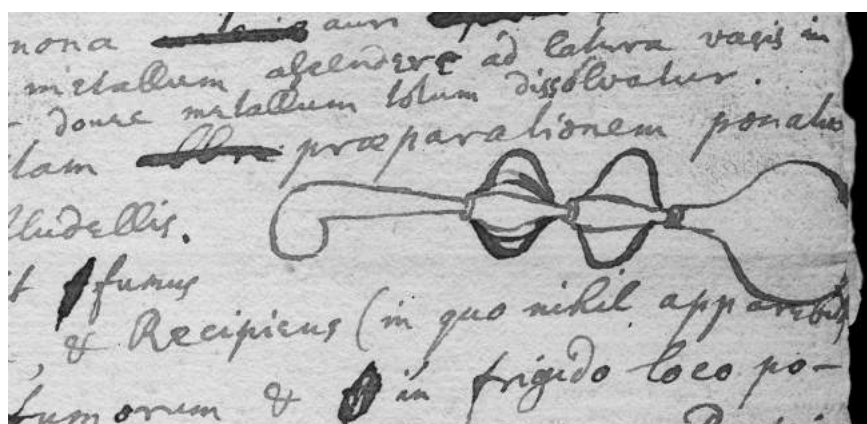 nona auri
metallum ascendere ad latura vasis in
donec metallum totum dissolvatur.
præparationem ponatur
lludellis.
fumus
, & Recipiens (in quo nihil apparebit)
fumorum & in frigido loco po-